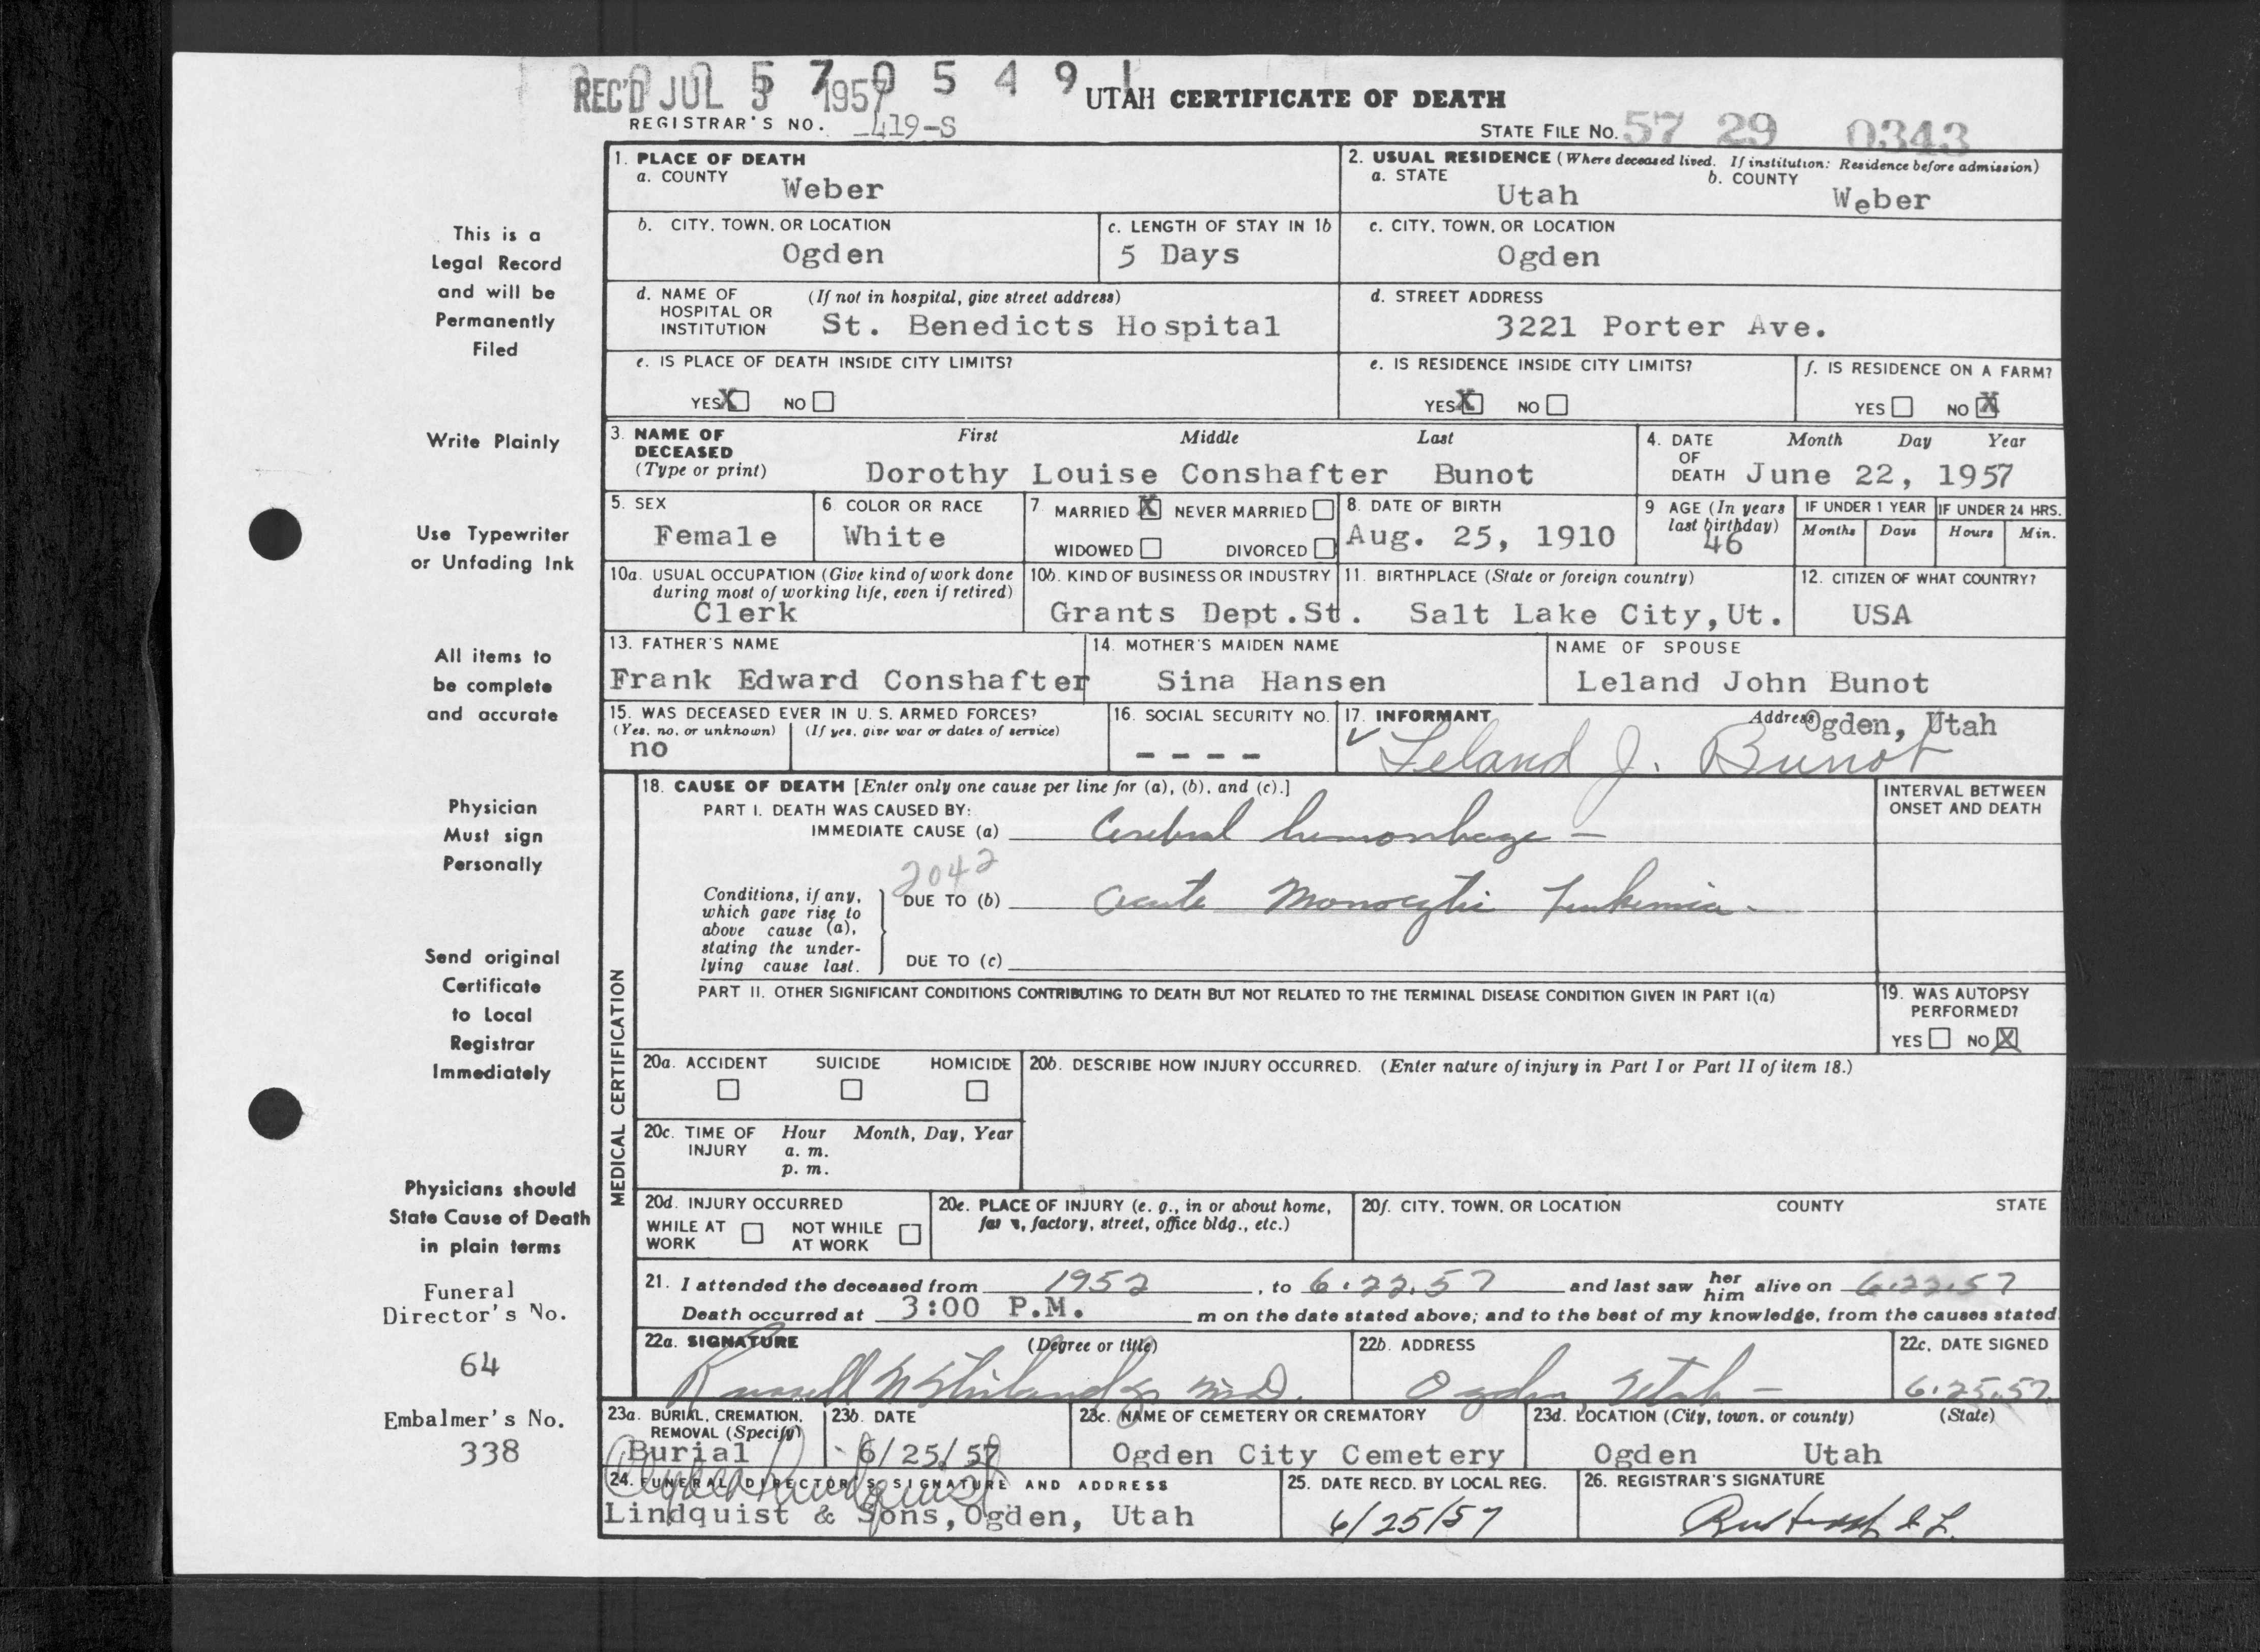 REC'D JUL 5 1957
5 7 0 5 4 9 1
UTAH CERTIFICATE OF DEATH
REGISTRAR'S NO. 419-S
STATE FILE NO. 57 29 0343
1. PLACE OF DEATH
a. COUNTY
Weber
2. USUAL RESIDENCE (Where deceased lived. If institution: Residence before admission)
a. STATE
Utah
b. COUNTY
Weber
b. CITY, TOWN, OR LOCATION
Ogden
c. LENGTH OF STAY IN 1b
5 Days
c. CITY, TOWN, OR LOCATION
Ogden
d. NAME OF HOSPITAL OR INSTITUTION
(If not in hospital, give street address)
St. Benedicts Hospital
d. STREET ADDRESS
3221 Porter Ave.
e. IS PLACE OF DEATH INSIDE CITY LIMITS?
YES X NO
e. IS RESIDENCE INSIDE CITY LIMITS?
YES X NO
f. IS RESIDENCE ON A FARM?
YES NO X
3. NAME OF DECEASED (Type or print)
First Middle Last
Dorothy Louise Conshafter Bunot
4. DATE OF DEATH
Month Day Year
June 22, 1957
5. SEX
Female
6. COLOR OR RACE
White
7. MARRIED X NEVER MARRIED
WIDOWED DIVORCED
8. DATE OF BIRTH
Aug. 25, 1910
9 AGE (In years last birthday)
46
IF UNDER 1 YEAR
Months Days
IF UNDER 24 HRS.
Hours Min.
10a. USUAL OCCUPATION (Give kind of work done during most of working life, even if retired)
Clerk
10b. KIND OF BUSINESS OR INDUSTRY
Grants Dept.St.
11. BIRTHPLACE (State or foreign country)
Salt Lake City,Ut.
12. CITIZEN OF WHAT COUNTRY?
USA
13. FATHER'S NAME
Frank Edward Conshafter
14. MOTHER'S MAIDEN NAME
Sina Hansen
NAME OF SPOUSE
Leland John Bunot
15. WAS DECEASED EVER IN U. S. ARMED FORCES?
(Yes, no, or unknown) (If yes, give war or dates of service)
no
16. SOCIAL SECURITY NO.
- - - -
17. INFORMANT
Address
Ogden, Utah
Leland J. Bunot
MEDICAL CERTIFICATION
18. CAUSE OF DEATH [Enter only one cause per line for (a), (b), and (c).]
PART I. DEATH WAS CAUSED BY:
IMMEDIATE CAUSE (a) Cerebral hemorrhage -
INTERVAL BETWEEN ONSET AND DEATH
2042
Conditions, if any, which gave rise to above cause (a), stating the underlying cause last.
DUE TO (b) acute Monocytic Leukemia -
DUE TO (c)
PART II. OTHER SIGNIFICANT CONDITIONS CONTRIBUTING TO DEATH BUT NOT RELATED TO THE TERMINAL DISEASE CONDITION GIVEN IN PART I(a)
19. WAS AUTOPSY PERFORMED?
YES NO X
20a. ACCIDENT SUICIDE HOMICIDE
20b. DESCRIBE HOW INJURY OCCURRED. (Enter nature of injury in Part I or Part II of item 18.)
20c. TIME OF INJURY
Hour Month, Day, Year
a. m.
p. m.
20d. INJURY OCCURRED
WHILE AT WORK NOT WHILE AT WORK
20e. PLACE OF INJURY (e. g., in or about home, farm, factory, street, office bldg., etc.)
20f. CITY, TOWN, OR LOCATION COUNTY STATE
21. I attended the deceased from 1952, to 6.22.57 and last saw her him alive on 6.22.57
Death occurred at 3:00 P.M. m on the date stated above; and to the best of my knowledge, from the causes stated
22a. SIGNATURE (Degree or title)
Russell M.D.
22b. ADDRESS
Ogden Utah -
22c. DATE SIGNED
6.25.57
23a. BURIAL, CREMATION, REMOVAL (Specify)
Burial
23b. DATE
6/25/57
23c. NAME OF CEMETERY OR CREMATORY
Ogden City Cemetery
23d. LOCATION (City, town, or county) (State)
Ogden Utah
24. FUNERAL DIRECTOR'S SIGNATURE AND ADDRESS
Lindquist & Sons,Ogden, Utah
25. DATE RECD. BY LOCAL REG.
6/25/57
26. REGISTRAR'S SIGNATURE
This is a
Legal Record
and will be
Permanently
Filed
Write Plainly
Use Typewriter
or Unfading Ink
All items to
be complete
and accurate
Physician
Must sign
Personally
Send original
Certificate
to Local
Registrar
Immediately
Physicians should
State Cause of Death
in plain terms
Funeral
Director's No.
64
Embalmer's No.
338